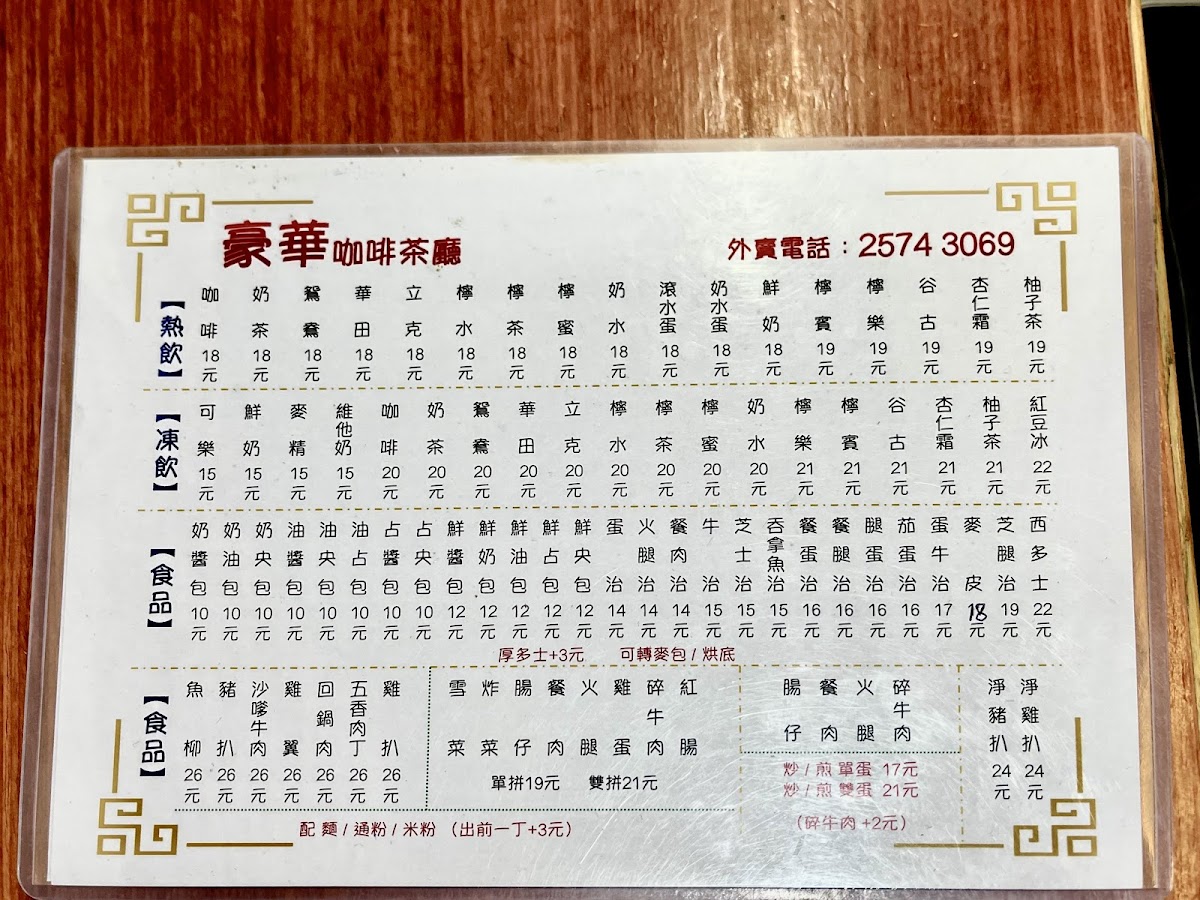 豪華咖啡茶廳
外賣電話：2574 3069
【熱飲】
咖啡 18元
奶茶 18元
鴛鴦 18元
華田 18元
立克 18元
檸水 18元
檸茶 18元
檸蜜 18元
奶水 18元
滾水蛋 18元
奶水蛋 18元
鮮奶 18元
檸賓 19元
檸樂 19元
谷古 19元
杏仁霜 19元
柚子茶 19元
【凍飲】
可樂 15元
鮮奶 15元
麥精 15元
維他奶 15元
咖啡 20元
奶茶 20元
鴛鴦 20元
華田 20元
立克 20元
檸水 20元
檸茶 20元
檸蜜 20元
奶水 20元
檸樂 21元
檸賓 21元
谷古 21元
杏仁霜 21元
柚子茶 21元
紅豆冰 22元
【食品】
奶醬包 10元
奶油包 10元
奶央包 10元
油醬包 10元
油央包 10元
油占包 10元
占醬包 10元
占央包 10元
鮮醬包 12元
鮮奶包 12元
鮮油包 12元
鮮占包 12元
鮮央包 12元
蛋治 14元
火腿治 14元
餐肉治 14元
牛治 15元
芝士治 15元
吞拿魚治 15元
餐蛋治 16元
餐腿治 16元
腿蛋治 16元
茄蛋治 16元
蛋牛治 17元
麥皮 18元
芝腿治 19元
西多士 22元
厚多士+3元 可轉麥包 / 烘底
【食品】
魚柳 26元
豬扒 26元
沙嗲牛肉 26元
雞翼 26元
回鍋肉 26元
五香肉丁 26元
雞扒 26元
雪菜
炸菜
腸仔
餐肉
火腿
雞蛋
碎牛肉
紅腸
單拼19元 雙拼21元
配 麵 / 通粉 / 米粉 （出前一丁+3元）
腸仔
餐肉
火腿
碎牛肉
炒 / 煎 單蛋 17元
炒 / 煎 雙蛋 21元
（碎牛肉 +2元）
淨豬扒 24元
淨雞扒 24元